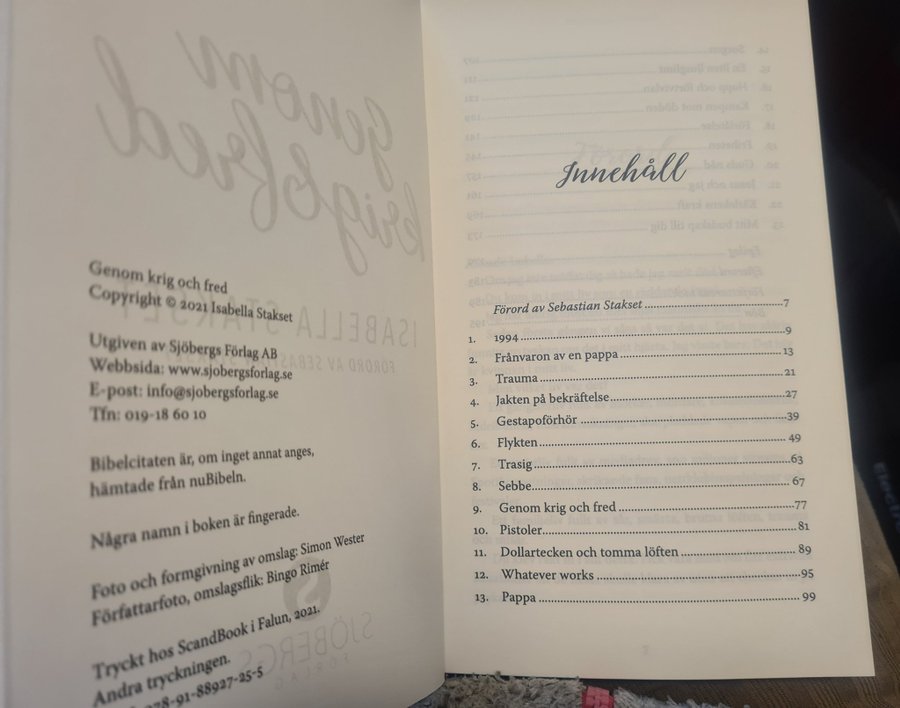 Genom krig och fred
Copyright © 2021 Isabella Stakset
Utgiven av Sjöbergs Förlag AB
Webbsida: www.sjobergsforlag.se
E-post: info@sjobergsforlag.se
Tfn: 019-18 60 10
Bibelcitaten är, om inget annat anges,
hämtade från nuBibeln.
Några namn i boken är fingerade.
Foto och formgivning av omslag: Simon Wester
Författarfoto, omslagsflik: Bingo Rimér
Tryckt hos ScandBook i Falun, 2021.
Andra tryckningen.
978-91-88927-25-5
Innehåll
Förord av Sebastian Stakset 7
1. 1994 9
2. Frånvaron av en pappa 13
3. Trauma 21
4. Jakten på bekräftelse 27
5. Gestapoförhör 39
6. Flykten 49
7. Trasig 63
8. Sebbe 67
9. Genom krig och fred 77
10. Pistoler 81
11. Dollartecken och tomma löften 89
12. Whatever works 95
13. Pappa 99